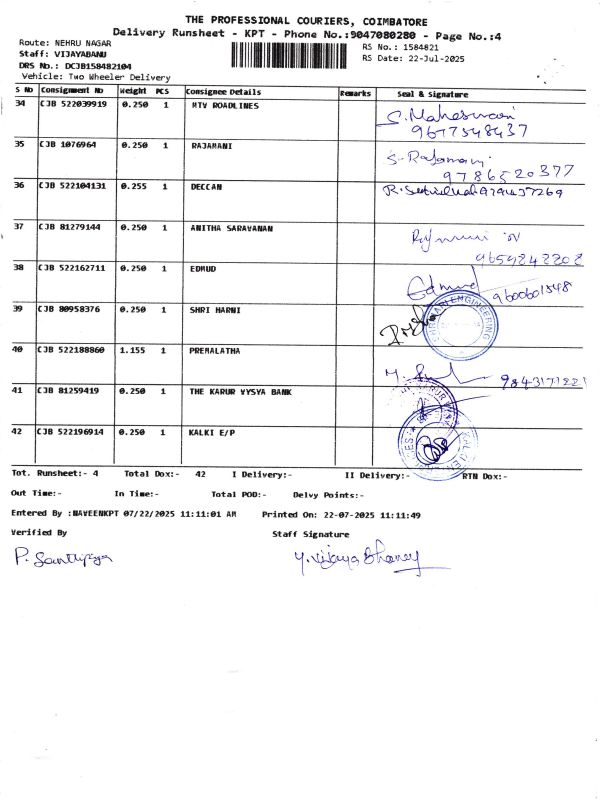 THE PROFESSIONAL COURIERS, COIMBATORE
Delivery Runsheet - KPT - Phone No.:9047080280 - Page No.:4
Route: NEHRU NAGAR
Staff: VIJAYABANU
DRS No.: DCJB158482104
Vehicle: Two Wheeler Delivery
RS No.: 1584821
RS Date: 22-Jul-2025
S No Consignment No Weight PCS Consignee Details Remarks Seal & Signature
34 CJB 522039919 0.250 1 MTV ROADLINES S. Maheswari
9677548437
35 CJB 1076964 0.250 1 RAJAMANI S. Rajamani
9786520377
36 CJB 522104131 0.255 1 DECCAN
37 CJB 81279144 0.250 1 ANITHA SARAVANAN
9659242202
38 CJB 522162711 0.250 1 EDMUD Edmud 9600601548
39 CJB 80958376 0.250 1 SHRI HARNI
ENGINEERING
40 CJB 522188860 1.155 1 PREMALATHA
41 CJB 81259419 0.250 1 THE KARUR VYSYA BANK
42 CJB 522196914 0.250 1 KALKI E/P
Tot. Runsheet:- 4 Total Dox:- 42 I Delivery:- II Delivery:- RTN Dox:-
Out Time:- In Time:- Total POD:- Delvy Points:-
Entered By :NAVEENKPT 07/22/2025 11:11:01 AM Printed On: 22-07-2025 11:11:49
Verified By Staff Signature
P. Santhiya Y. Vijaya Bhaney